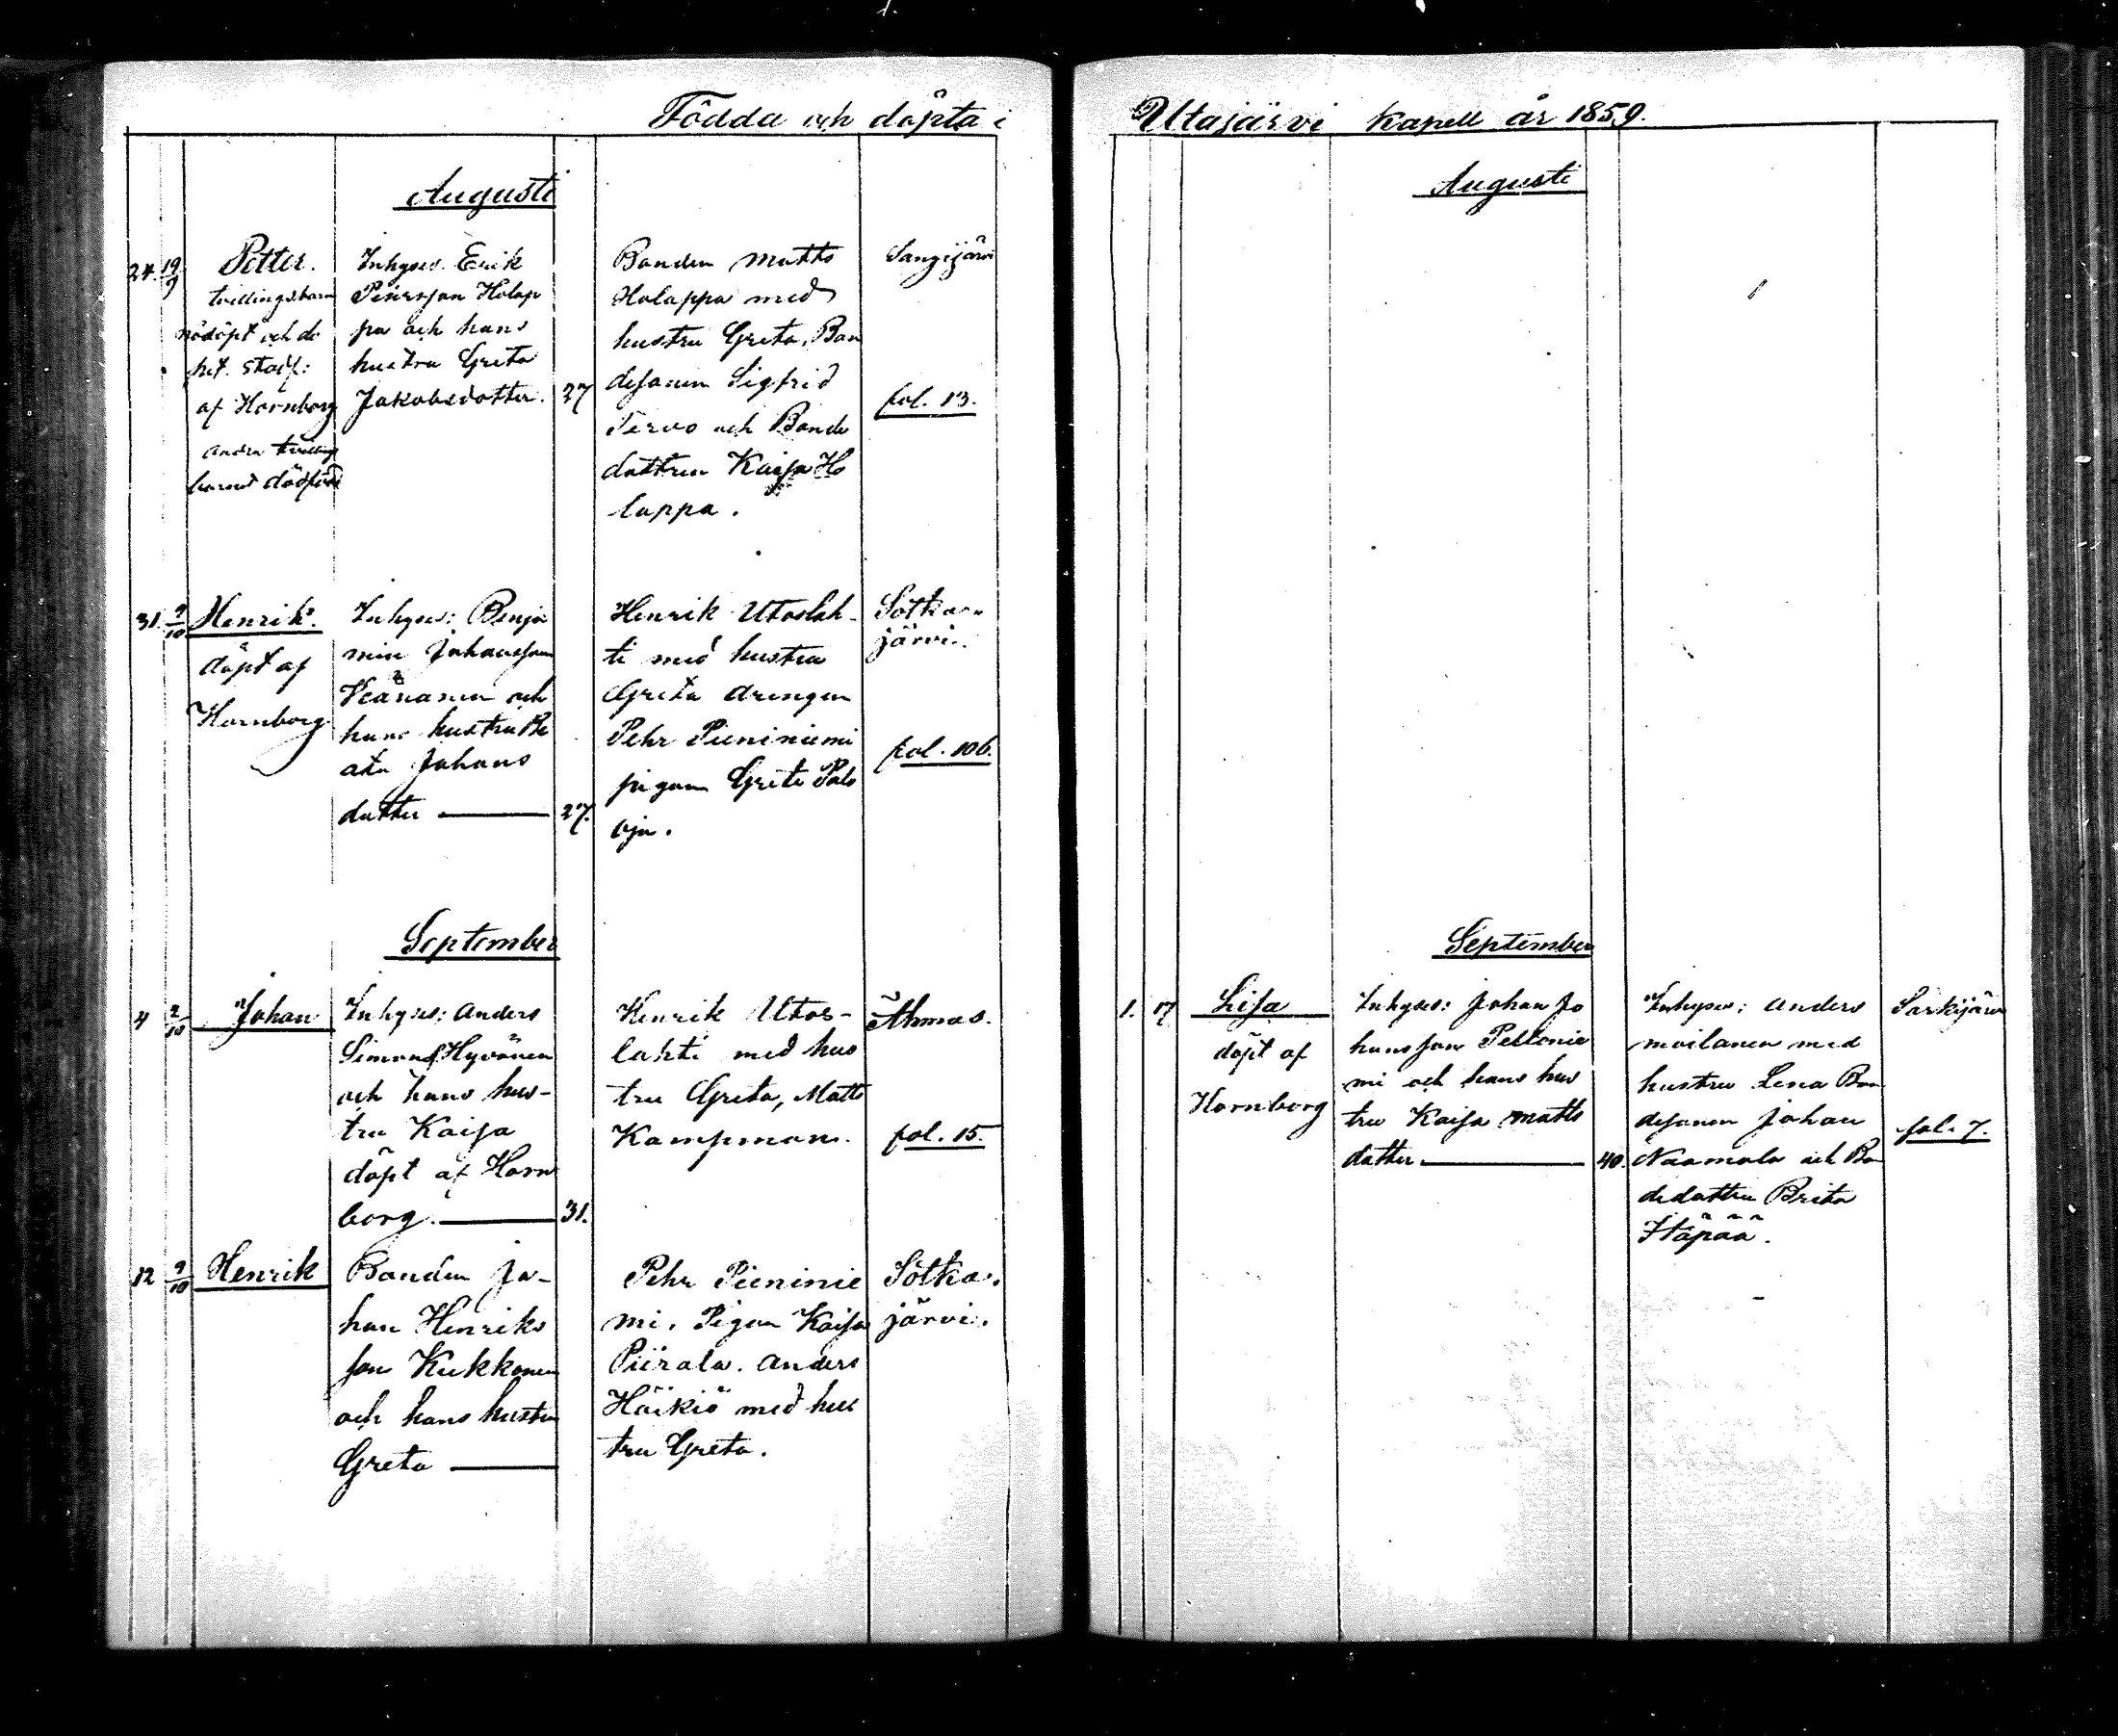 Födda och döpta i Utajärvi kapell år 1859.
Augusti
24. 19/9 Petter.
tvillingsbarn
nödöpt och do
pet. stadf:
af Hornborg
andra tvilling
barnet dödfödd
Inhyses. Erik
Petersson Holap
pa och hans
hustru Greta
Jakobsdotter. 27
Bonden Matts
Holappa med
hustru Greta, Bon
desonen Sigfrid
Tervo och Bonde
dottren Kaisa Ho
lappa.
Sangijärvi
fol. 13.
31. 9/10 Henrik.
döpt af
Hornborg
Inhyses: Benja
min Johansson
Väänänen och
hans hustru Be
ata Johans
dotter 27.
Henrik Utoslah-
ti med hustru
Greta drengen
Pehr Pieniniemi
pigan Greta Palo
oja.
Sotka-
järvi.
fol. 106.
September
4 2/10 Johan
Inhyses: Anders
Simons Hyvönen
och hans hus-
tru Kaisa
döpt af Horn
borg. 31.
Henrik Utos-
lahti med hus
tru Greta, Matts
Kampman.
Ahmas.
fol. 15.
12 9/10 Henrik
Bonden Jo-
han Henriks
son Kukkonen
och hans hustru
Greta
Pehr Pieninie
mi. Pigan Kaisa
Piirala. Anders
Häikiö med hus
tru Greta.
Sotka-
järvi.
Augusti
September
1. 17 Lisa
döpt af
Hornborg
Inhyses: Johan Jo
hansson Peltonie
mi och hans hus
tru Kaisa Matts
dotter 40.
Inhyses: Anders
Moilanen med
hustru Lena Bon
desonen Johan
Naamala och Bon
dedottren Brita
Itäpää.
Särkijärvi
fol. 7.